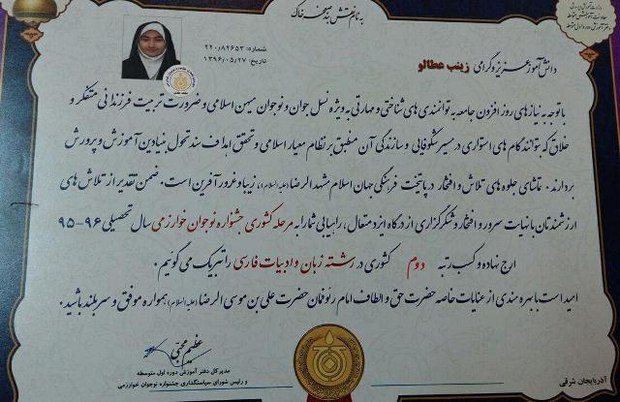 به نام نقش بند صفحه خاک
شماره: ۲۲۰/۸۲۶۵۳
تاریخ: ۱۳۹۶/۰۵/۲۷
دانش آموز عزیز و گرامی زینب عطالو
با توجه به نیازهای روز افزون جامعه به توانمندی های شناختی و مهارتی به ویژه نسل جوان و نوجوان میهن اسلامی و ضرورت تربیت فرزندانی متفکر و
خلاق که بتوانند گام های استواری در مسیر شکوفایی و سازندگی آن منطبق بر نظام معیار اسلامی و تحقق اهداف سند تحول بنیادین آموزش و پرورش
بردارند. تماشای جلوه های تلاش و افتخار در پایتخت فرهنگی جهان اسلام مشهد الرضا (علیه السلام)، زیبا و غرور آفرین است. ضمن تقدیر از تلاش های
ارزشمندتان با نهایت سرور و افتخار و شکرگزاری از درگاه ایزد متعال، راهیابی شما را به مرحله کشوری جشنواره نوجوان خوارزمی سال تحصیلی ۹۶-۹۵
ارج نهاده و کسب رتبه دوم کشوری در رشته زبان و ادبیات فارسی را تبریک می گوئیم.
امید است با بهره مندی از عنایات خاصه حضرت حق و الطاف امام رئوفمان حضرت علی بن موسی الرضا (علیه السلام)، همواره موفق و سربلند باشید.
عظیم محبی
مدیر کل دفتر آموزش دوره اول متوسطه
و رئیس شورای سیاستگذاری جشنواره نوجوان خوارزمی
آذربایجان شرقی